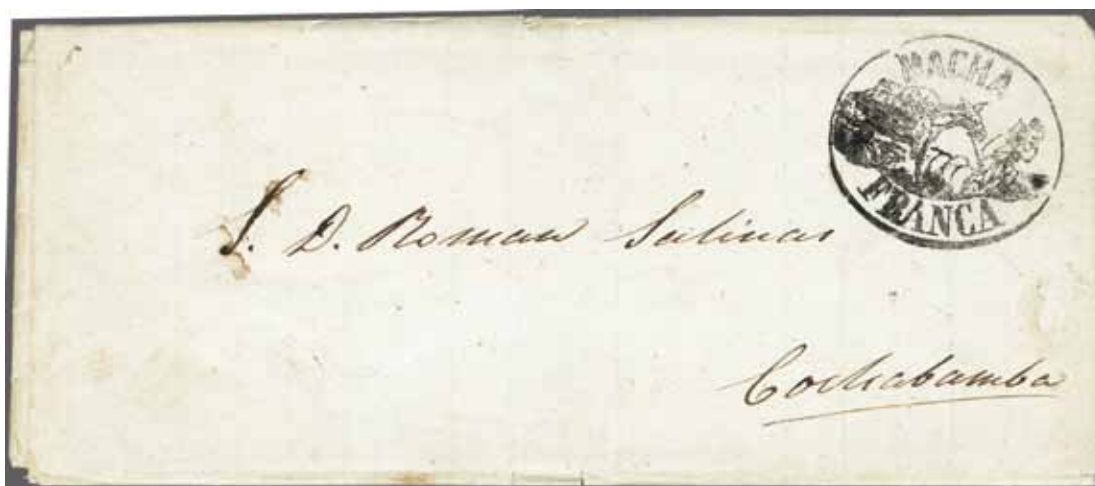 MACHA
FRANCA
S. D. Roman Salinas
Cochabamba